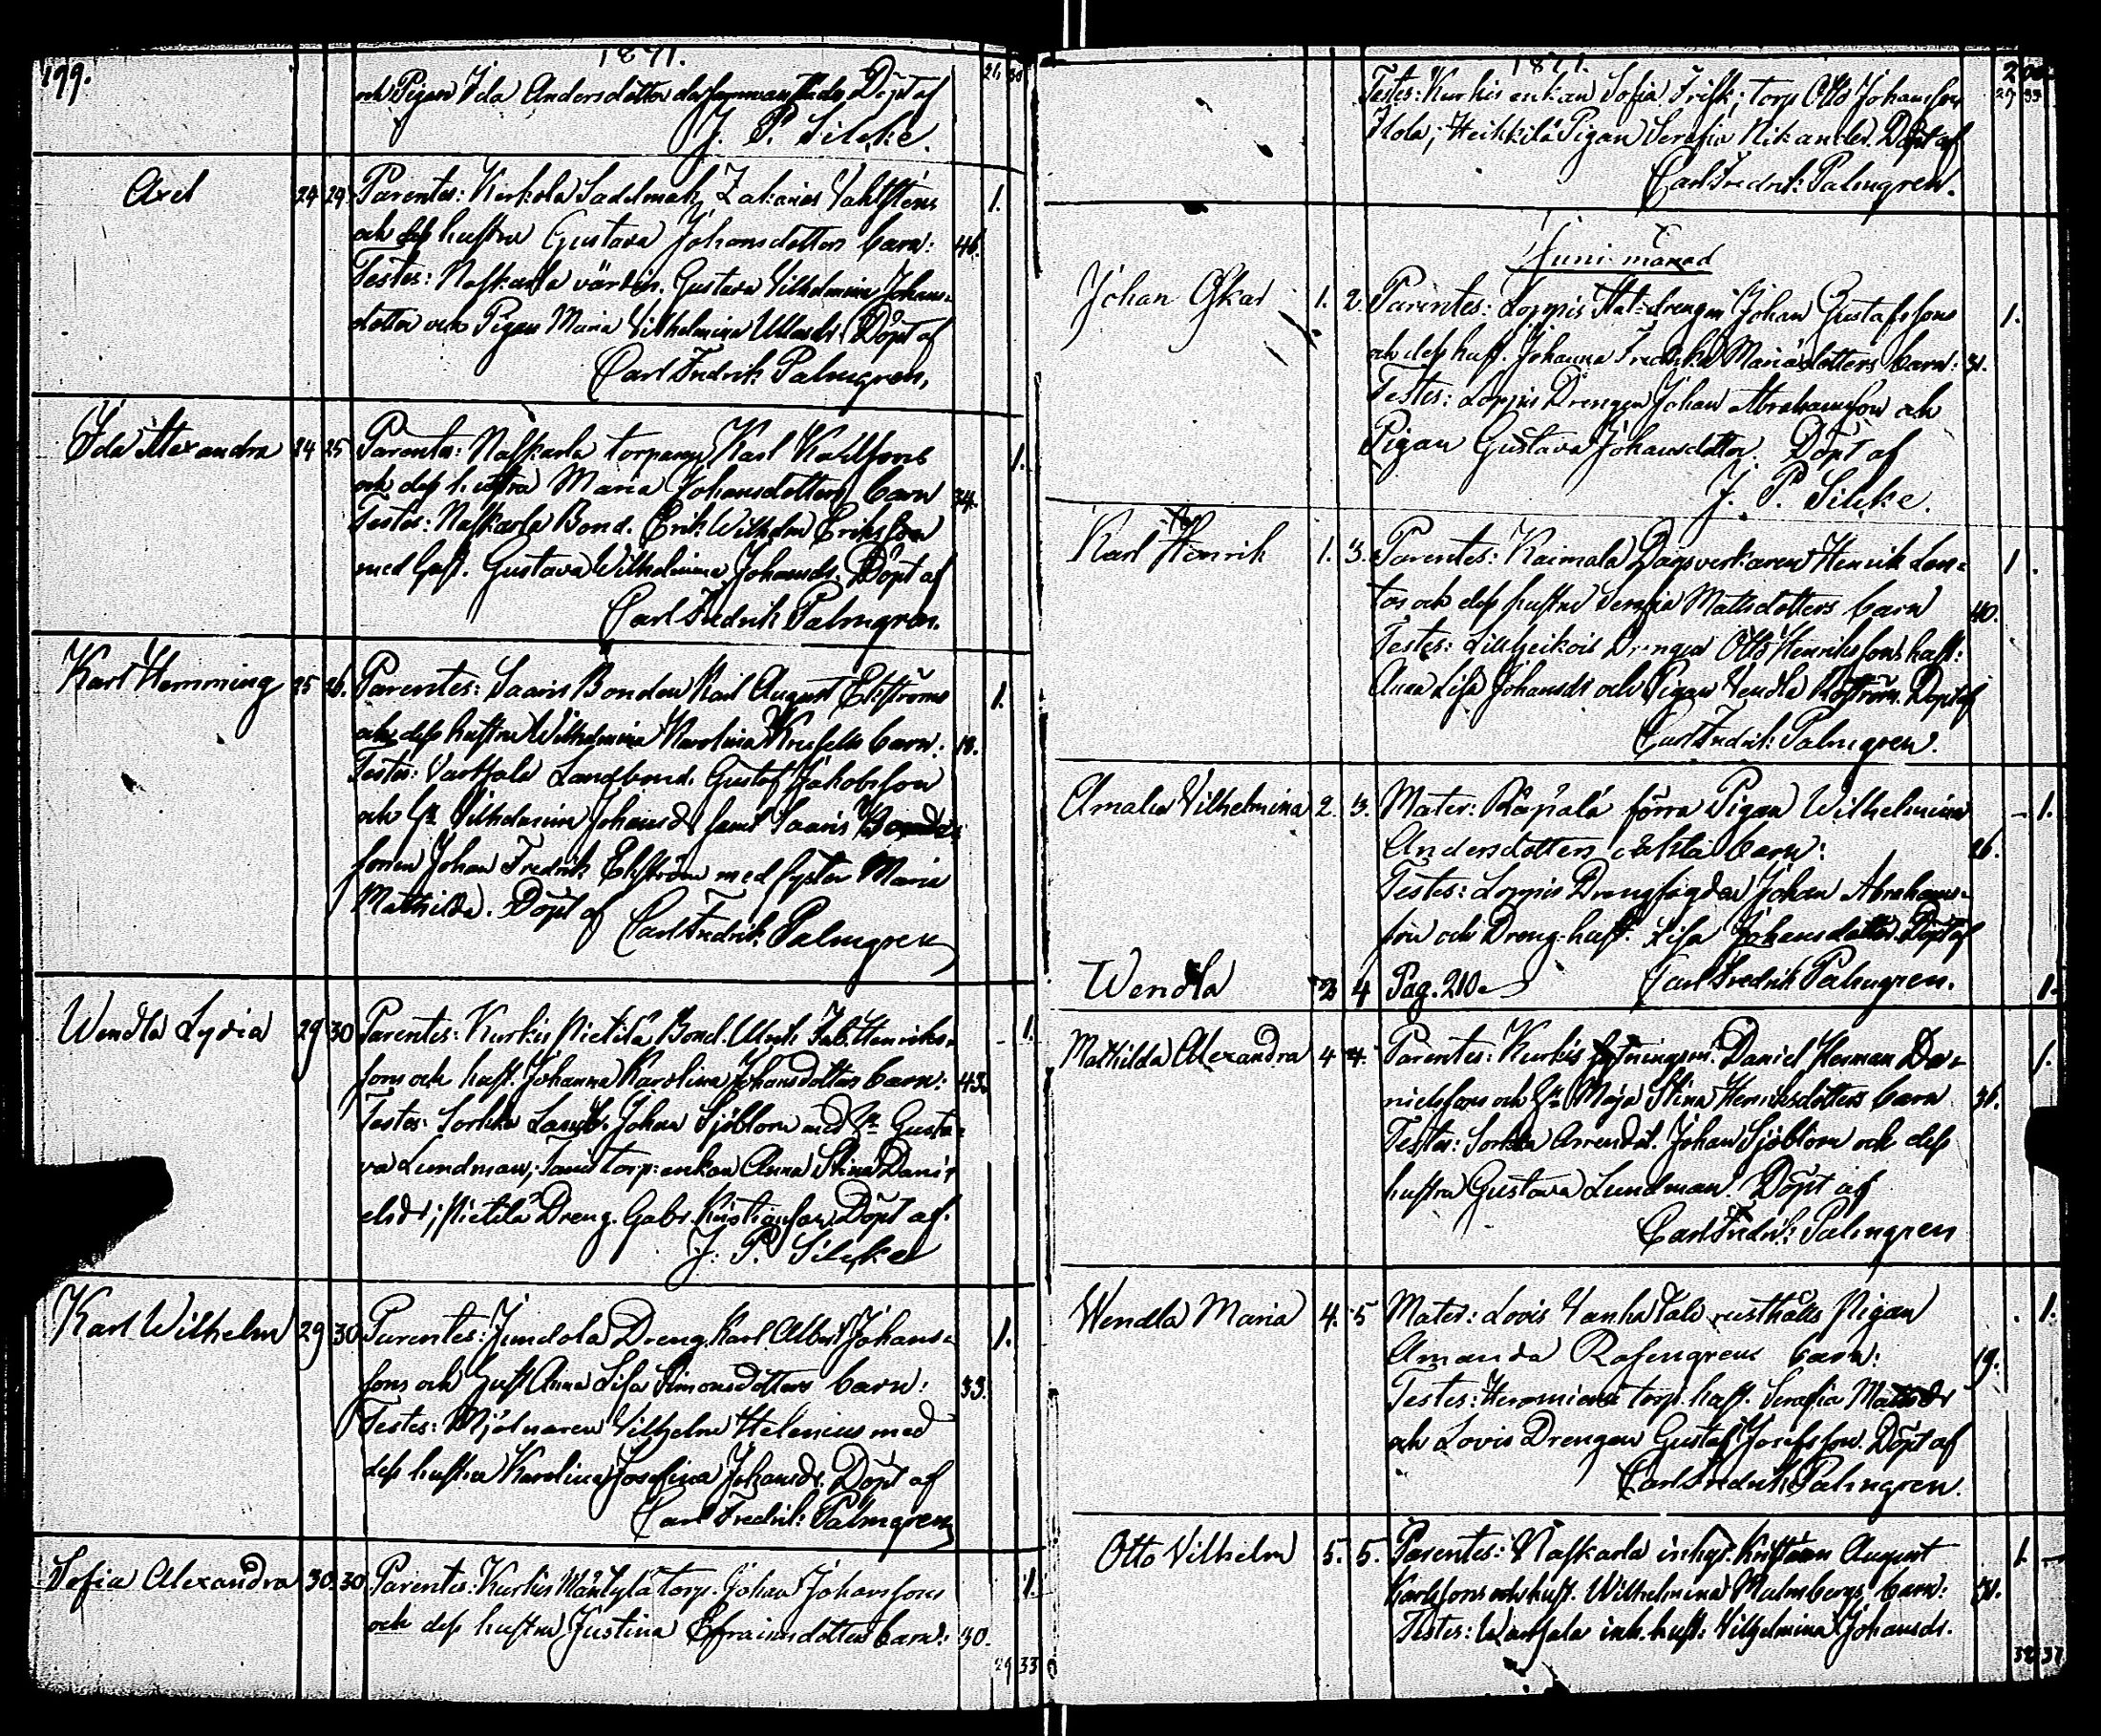 199.
1871.
26 30
och Pigan Ida Andersdotter dersammanstädes Döpt af
J. P. Silcke.
Axel 24 29 Parentes: Kerkola Sadelmak. Zakarias Vahlstens 1.
och dess hustru Gustava Johansdotters barn: 46.
Testes: Naskarla värdin. Gustava Vilhelmina Johans-
dotter och Pigan Maria Vilhelmina Döpt af
Carl Fredrik Palmgren,
Ida Alexandra 24 25 Parentes: Naskarla torparen Karl Karlssons 1.
och dess hustru Maria Johansdotters barn 34.
Testes: Naskarla Bond. Erik Wilhelm Eriksson
med hust. Gustava Wilhelmina Johansdr. Döpt af
Carl Fredrik Palmgren.
Karl Hemming 25 26. Parentes: Saaris Bonden Karl August Ekströms 1.
och dess hustru Wilhelmina Karolina barn: 18.
Testes: Landbond. Gustaf Jakobsson
och Hr. Vilhelmina Johansdr. samt Saaris Bonde-
sonen Johan Fredrik Ekström med syster Maria
Mathilda. Döpt af Carl Fredrik Palmgren
Wendla Lydia 29 30 Parentes: Kurkis Pietilä Bond. Henriks- 1.
sons och hust. Johanna Karolina Johansdotters barn: 43.
Testes: Sorkka Landb. Johan Sjöblom med Hr. Gusta-
va Lundman; torp: enkan Anna Stina Dani-
elsdr; Pietilä Dreng. Gabr. Kristiansson Döpt af.
J. P. Silcke
Karl Wilhelm 29 30 Parentes: Dreng. Karl Albert Johans- 1.
sons och hust Anna Lisa Simonsdotters barn: 33.
Testes: Mjölnaren Vilhelm Helenius med
dess hustru Karolina Josefina Johansdr. Döpt af
Carl Fredrik Palmgren
Sofia Alexandra 30. 30 Parentes: Kurkis Mäntylä torp. Johan Johanssons 1.
och dess hustru Justina Efraimsdotters barn: 30.
29 33
1871.
200.
29 33
Testes: Kurkis enkan Sofia Frisk; torp Otto Johansson
Heikkilä Pigan Serafia Nikander. Döpt af
Carl Fredrik Palmgren.
Juni månad
Johan Oskar 1. 2. Parentes: Loppis Stat-drengen Johan Gustafssons 1.
och dess hust. Johanna Fredrika Mariasdotters barn: 31.
Testes: Loppis Drengen Johan Abrahamsson och
Pigan Gustava Johansdotter. Döpt af
J. P. Silcke.
Karl Henrik 1. 3. Parentes: Raimala Dagsverkaren Henrik Len- 1.
tos och dess hustru Serafia Mattsdotters barn 40.
Testes: Lillheikois Drengen Otto Henrikssons hust:
Anna Lisa Johansdr och Pigan Vendla Döpt af
Carl Fredrik Palmgren.
Amalia Vilhelmina 2. 3. Mater: Räpälä förra Pigan Wilhelmina - 1.
Andersdotters oäkta barn: 26.
Testes: Loppis Drengfogden Johan Abrahams-
son och Dreng-hust. Lisa Johansdotter. Döpt af
Carl Fredrik Palmgren.
Wendla 2 4 Pag. 210. 1.
Mathilda Alexandra 4 4. Parentes: Kurkis Daniel Herman Da- 1.
nielssons och Hr. Maja Stina Henriksdotters barn 36.
Testes: Sorkka Arrendat. Johan Sjöblom och dess
hustru Gustava Lundman. Döpt af
Carl Fredrik Palmgren
Wendla Maria 4. 5 Mater: Lovis Vanha Talo rusthålls Pigan 1.
Amanda Rosengrens barn: 19.
Testes: torp. hust. Serafia Mattsdr
och Lovis Drengen Gustaf Josefsson. Döpt af
Carl Fredrik Palmgren.
Otto Vilhelm 5. 5. Parentes: Naskarla inhys. August 1. -
Karlssons och hust. Wilhelmina Malmbergs barn:
Testes: inh. hust: Vilhelmina Johansdr.
32 37